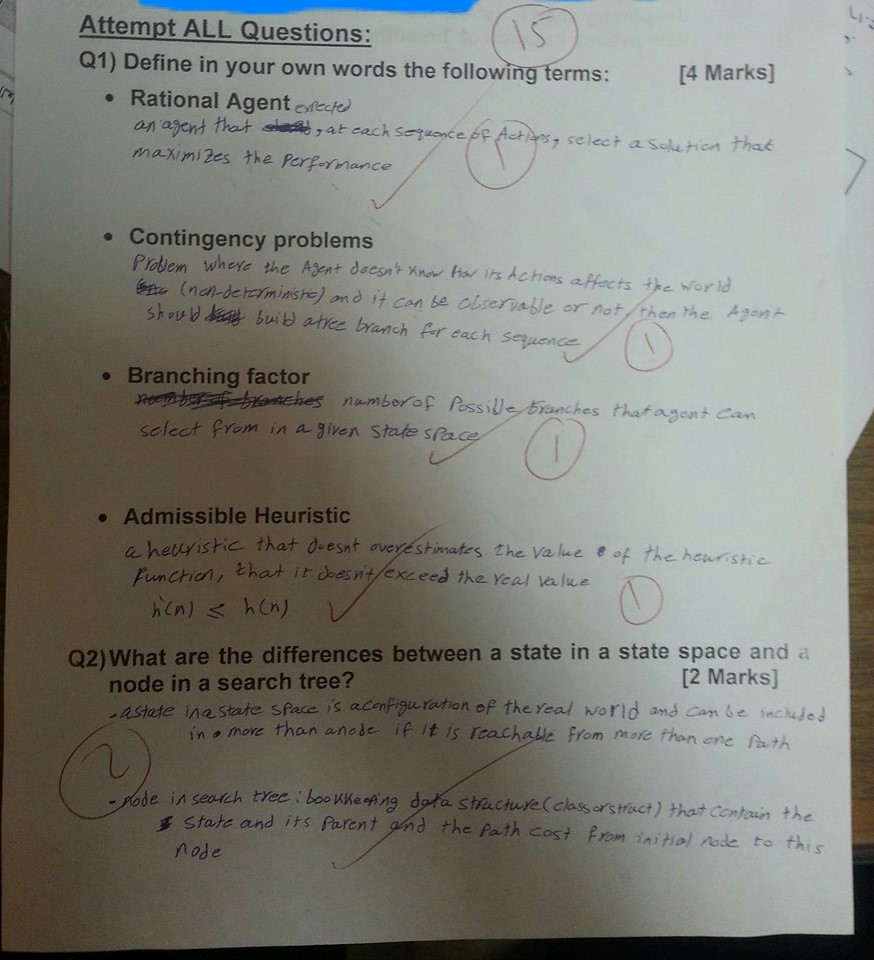 Attempt ALL Questions:
15
Q1) Define in your own words the following terms: [4 Marks]
• Rational Agent
expected
an agent that , at each sequence of Actions, select a solution that
maximizes the performance
1
• Contingency problems
Problem where the Agent doesn't know How its Actions affects the world
(non-deterministic) and it can be observable or not, then the Agent
should build a tree branch for each sequence
1
• Branching factor
number of branches number of Possible branches that agent can
select from in a given state space
1
• Admissible Heuristic
a heuristic that doesnt overestimates the value of the heuristic
function, that it doesn't exceed the real value
h'(n) ≤ h(n)
1
Q2) What are the differences between a state in a state space and a
node in a search tree? [2 Marks]
- a state in a state space is a configuration of the real world and can be included
in more than a node if it is reachable from more than one Path
2
- node in search tree : bookkeeping data structure (class or struct) that contain the
state and its Parent and the Path cost from initial node to this
node